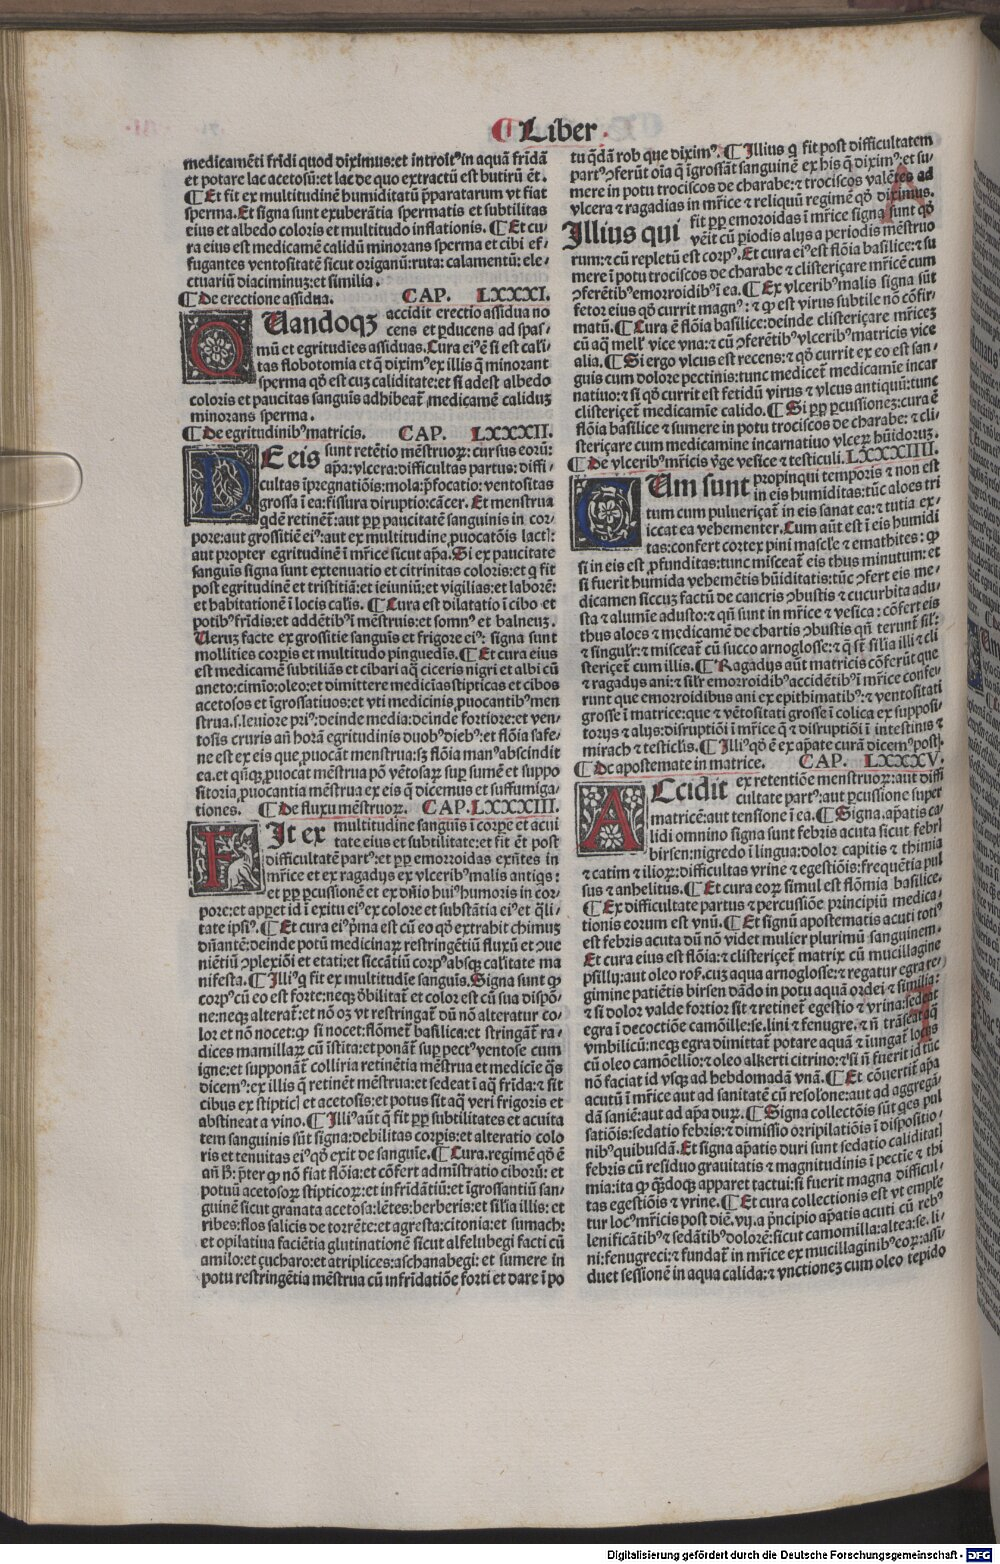 Liber
medicamēti frīdi quod diximus:et introitꝰ in aquā frīdā
et potare lac acetosū:et lac de quo extractū est butirū ēt.
¶ Et fit ex multitudinē humiditatū pparatarum vt fiat
sperma. Et signa sunt exuberātia spermatis et subtilitas
eius et albedo coloris et multitudo inflationis. ¶ Et cu-
ra eius est medicamē calidū minorans sperma et cibi ef-
fugantes ventositatē sicut origanū:ruta:calamentū:ele-
ctuariū diaciminuȝ:et similia.
¶ De erectione assidua. CAP. LXXXI.
QUandoqȝ accidit erectio assidua no
cens et pducens ad spas-
mū et egritudīes assiduas. Cura eiꝰ ē si est cali-
tas flobotomia et q̄ diximꝰ ex illis q̄ minorant
sperma qđ est cuȝ caliditate:et si adest albedo
coloris et paucitas sanguis adhibeat medicamē caliduȝ
minorans sperma.
¶ De egritudinibꝰ matricis. CAP. LXXXII.
DE eis sunt retētio mēstruoꝝ: cursus eorū:
apa:vlcera:difficultas partus:diffi-
cultas īpregnatiōis:mola:pfocatio:ventositas
grossa ī ea:fissura diruptio:cācer. Et menstrua
qdē retinēt:aut pp paucitatē sanguinis in cor-
pore:aut grossitiē eiꝰ:aut ex multitudine puocatōis lact:
aut propter egritudinē ī mr̄ice sicut apa. Si ex paucitate
sanguis signa sunt extenuatio et citrinitas coloris:et q fit
post egritudinē et tristitiā:et ieiuniū:et vigilias:et laborē:
et habitationē ī locis calis. ¶ Cura est dilatatio ī cibo et
potibꝰ frīdis:et addētibꝰ ī mēstruis:et somnꝰ et balneuȝ.
Ueruȝ facte ex grossitie sanguis et frigore eiꝰ: signa sunt
mollities corpis et multitudo pinguedis. ¶ Et cura eius
est medicamē subtiliās et cibari aq̄ ciceris nigri et albi cū
aneto:cimīo:oleo:et dimittere medicias stipticas et cibos
acetosos et īgrossatiuos:et vti medicinis puocantibꝰ men
strua.s.leuiore priꝰ:deinde media:deinde fortiore:et ven-
tosis cruris an̄ horā egritudinis duobꝰ diebꝰ:et flōia safe-
ne est ex eis que puocāt menstrua:sȝ flōia manꝰ abscindit
ea.et qn̄qȝ puocat mēstrua pō vētosaꝝ sup sumē et suppo
sitoria puocantia mēstrua ex eis q̄ dicemus et suffumiga-
tiones. ¶ De fluxu mēstruoꝝ. CAP. LXXXIII.
FIt ex multitudine sanguis ī corpe et acui
tate eius et subtilitate:et fit ēt post
difficultatē partꝰ:et pp emorroidas exn̄tes in
mr̄ice et ex ragadys ex vlceribꝰ malis antiqs:
et pp pcussionē et ex dn̄io huiꝰ humoris in cor-
pore:et appet id ī exitu eiꝰ ex colore et substātia eiꝰ et q̄li-
tate ipsiꝰ. ¶ Et cura eiꝰ pma est cū eo qđ extrabit chimuȝ
dn̄antē:deinde potū medicinaꝝ restringētiū fluxū et ꝯue
niētiū ꝯplexiōi et etati:et siccātiū corpꝰ absqȝ calitate ma
nifesta. ¶ Illiꝰ q fit ex multitudie sanguis. Signa sunt ꝙ
corpꝰ cū eo est forte:neqȝ debilitat et color est cū sua dispō-
ne:neqȝ alterat:et nō oȝ vt restringat dū nō alteratur co-
lor et nōn nocet:ꝙ si nocet:flōmet basilica:et stringāt ra-
dices mamillaꝝ cū īstita:et ponāt sup pectꝰ ventose cum
igne:et supponāt colliria retinētia mēstrua et medicie q̄s
dicemꝰ:ex illis q̄ retinēt mēstrua:et sedeat ī aq̄ frīda:⁊ sit
cibus ex stiptic et acetosis:et potus sit aq̄ veri frigoris et
abstineat a vino. ¶ Illiꝰ aut q̄ fit pp subtilitates et acuita
tem sanguinis sūt signa:debilitas corpis:et alteratio colo
ris et tenuitas eiꝰ qđ exit de sanguie. ¶ Cura.regimē qđ ē
an̄ ħ: pter ꝙ nō fiat flōia:et cōfert admistratio ciborū: et
potuū acetosoꝝ stipticoꝝ:et infrīdātiū:et īgrossantiū san-
guinē sicut granata acetosa:lētes:berberis:et silia illis: et
ribes:flos salicis de torrēte:et agresta:citonia:et sumach:
et opilatiua faciētia glutinationē sicut alfelubegi facti cū
amilo:et çucharo:et atriplices:aschanabegi: et sumere in
potu restringētia mēstrua cū infrīdatiōe forti et dare ī po
tu q̄dā rob que diximꝰ. ¶ Illius q fit post difficultatem
partꝰ ꝯferūt oīa q̄ īgrossāt sanguinē ex his q̄ diximꝰ:et su-
mere in potu trociscos de charabe:⁊ trociscos valētes ad
vlcera ⁊ ragadias in mr̄ice ⁊ reliquū regimē qđ diximus.
Illius qui fit pp emoroidas ī mr̄ice signa sunt qđ
vēit cū piodis alys a periodis mēstruo
rum:⁊ cū repletū est corpꝰ. Et cura eiꝰ est flōia basilice:⁊ su
mere ī potu trociscos de charabe ⁊ clisteriçare mr̄icē cum
ꝯferētibꝰ emorroidibꝰ ī ea. ¶ Ex vlceribꝰ malis signa sūt
fetor eius qđ currit magnꝰ: ⁊ ꝙ est virus subtile nō cōfir-
matū. ¶ Cura ē flōia basilice:deinde clisteriçare mr̄iceȝ
cū aq̄ mell vice vna:⁊ cū ꝯferētibꝰ vlceribꝰ matricis vice
alia. ¶ Si ergo vlcus est recens:⁊ qđ currit ex eo est san-
guis cum dolore pectinis:tunc medicet medicamīe incar
natiuo:⁊ si qđ currit est fetidū virus ⁊ vlcus antiquū:tunc
clisteriçet medicamie calido. ¶ Si pp pcussioneȝ:cura ē
flōia basilice ⁊ sumere in potu trociscos de charabe: ⁊ cli-
steriçare cum medicamine incarnatiuo vlceꝝ hūidoruȝ.
¶ De vlceribꝰ mr̄icis v̄ge vesice ⁊ testiculi. LXXXIIII.
CUm sunt propinqui temporis ⁊ non est
in eis humiditas:tūc aloes tri
tum cum pulueriçat in eis sanat ea:⁊ tutia ex-
iccat ea vehementer. Cum aūt est ī eis humidi
tas:confert cortex pini mascle ⁊ emathites: ꝙ
si in eis est pfunditas:tunc misceat eis thus minutum: et
si fuerit humida vehemētis hūiditatis:tūc ꝯfert eis me-
dicamen siccuȝ factū de cancris ꝯbustis ⁊ cucurbita adu
sta ⁊ alumīe adusto:⁊ qn̄ sunt in mr̄ice ⁊ vesica: cōfert eis
thus aloes ⁊ medicamē de chartis ꝯbustis qn̄ terunt sil:
⁊ singulr:⁊ misceat cū succo arnoglosse:⁊ q̄ sūt silia illi ⁊ cli
steriçet cum illis. ¶ Ragadys aūt matricis cōferūt que
⁊ ragadys ani:⁊ silr emorroidibꝰ accidētibꝰ ī mr̄ice confe-
runt que emorroidibus ani ex epithimatibꝰ:⁊ ventositati
grosse ī matrice:que ⁊ vētositati grosse ī colica ex supposi-
torys ⁊ alys:disruptiōi ī mr̄ice q̄ ⁊ disruptiōi ī intestinis ⁊
mirach ⁊ testiclis. ¶ Illiꝰ qđ ē ex apate curā dicemꝰ post.
¶ De apostemate in matrice. CAP. LXXXV.
ACcidit ex retentiōe menstruoꝝ:aut diffi
cultate partꝰ:aut pcussione super
matricē:aut tensione ī ea. ¶ Signa.apatis ca-
lidi omnino signa sunt febris acuta sicut febri
birsen:nigredo ī lingua:dolor capitis ⁊ thimia
⁊ catim ⁊ ilioꝝ:difficultas vrine ⁊ egestiōis:frequētia pul
sus ⁊ anhelitus. ¶ Et cura eoꝝ simul est flōmia basilice.
¶ Ex difficultate partus ⁊ percussiōe principiū medica-
tionis eorum est vnū. ¶ Et signū apostematis acuti totiꝰ
est febris acuta dū nō videt mulier plurimū sanguinem.
Et cura eius est flōia:⁊ clisteriçet matrix cū mucillagine
psilly:aut oleo roȝ.cuȝ aqua arnoglosse:⁊ regatur egra re-
gimine patiētis birsen dādo in potu aquā ordei ⁊ similia:
⁊ si dolor valde fortior sit ⁊ retinet egestio ⁊ vrina:sedeat
egra ī decoctiōe camōille:se.lini ⁊ fenugre. ⁊ n̄ trāseat aq̄
vmbilicū:neqȝ egra dimittat potare aquā ⁊ iungat locus
cū oleo camōellio:⁊ oleo alkerti citrino:⁊ si n̄ fuerit id tūc
nō faciat id vsqȝ ad hebdomadā vnā. ¶ Et cōuertit apa
acutū ī mr̄ice aut ad sanitatē cū resolone:aut ad aggregā-
dā saniē:aut ad apa duꝝ. ¶ Signa collectōis sūt qes pul
satiōis:sedatio febris:⁊ dimissio orripilatiōis ī dispositio-
nibꝰ quibusdā. Et signa apatis duri sunt sedatio caliditati
febris cū residuo grauitatis ⁊ magnitudinis ī pectie ⁊ thi
mia:ita ꝙ qn̄doqȝ apparet tactui:si fuerit magna difficul-
tas egestiōis ⁊ vrine. ¶ Et cura collectionis est vt emple
tur locꝰ mr̄icis post diē.vij.a pncipio apatis acuti cū rebꝰ
lenificātibꝰ ⁊ sedātibꝰ dolorē:sicut camomilla:altea:se.li-
ni:fenugreci:⁊ fundat in mr̄ice ex mucillaginibꝰ eoꝝ:assi-
duet sessionē in aqua calida:⁊ vnctioneȝ cum oleo tepido
Digitalisierung gefördert durch die Deutsche Forschungsgemeinschaft - DFG